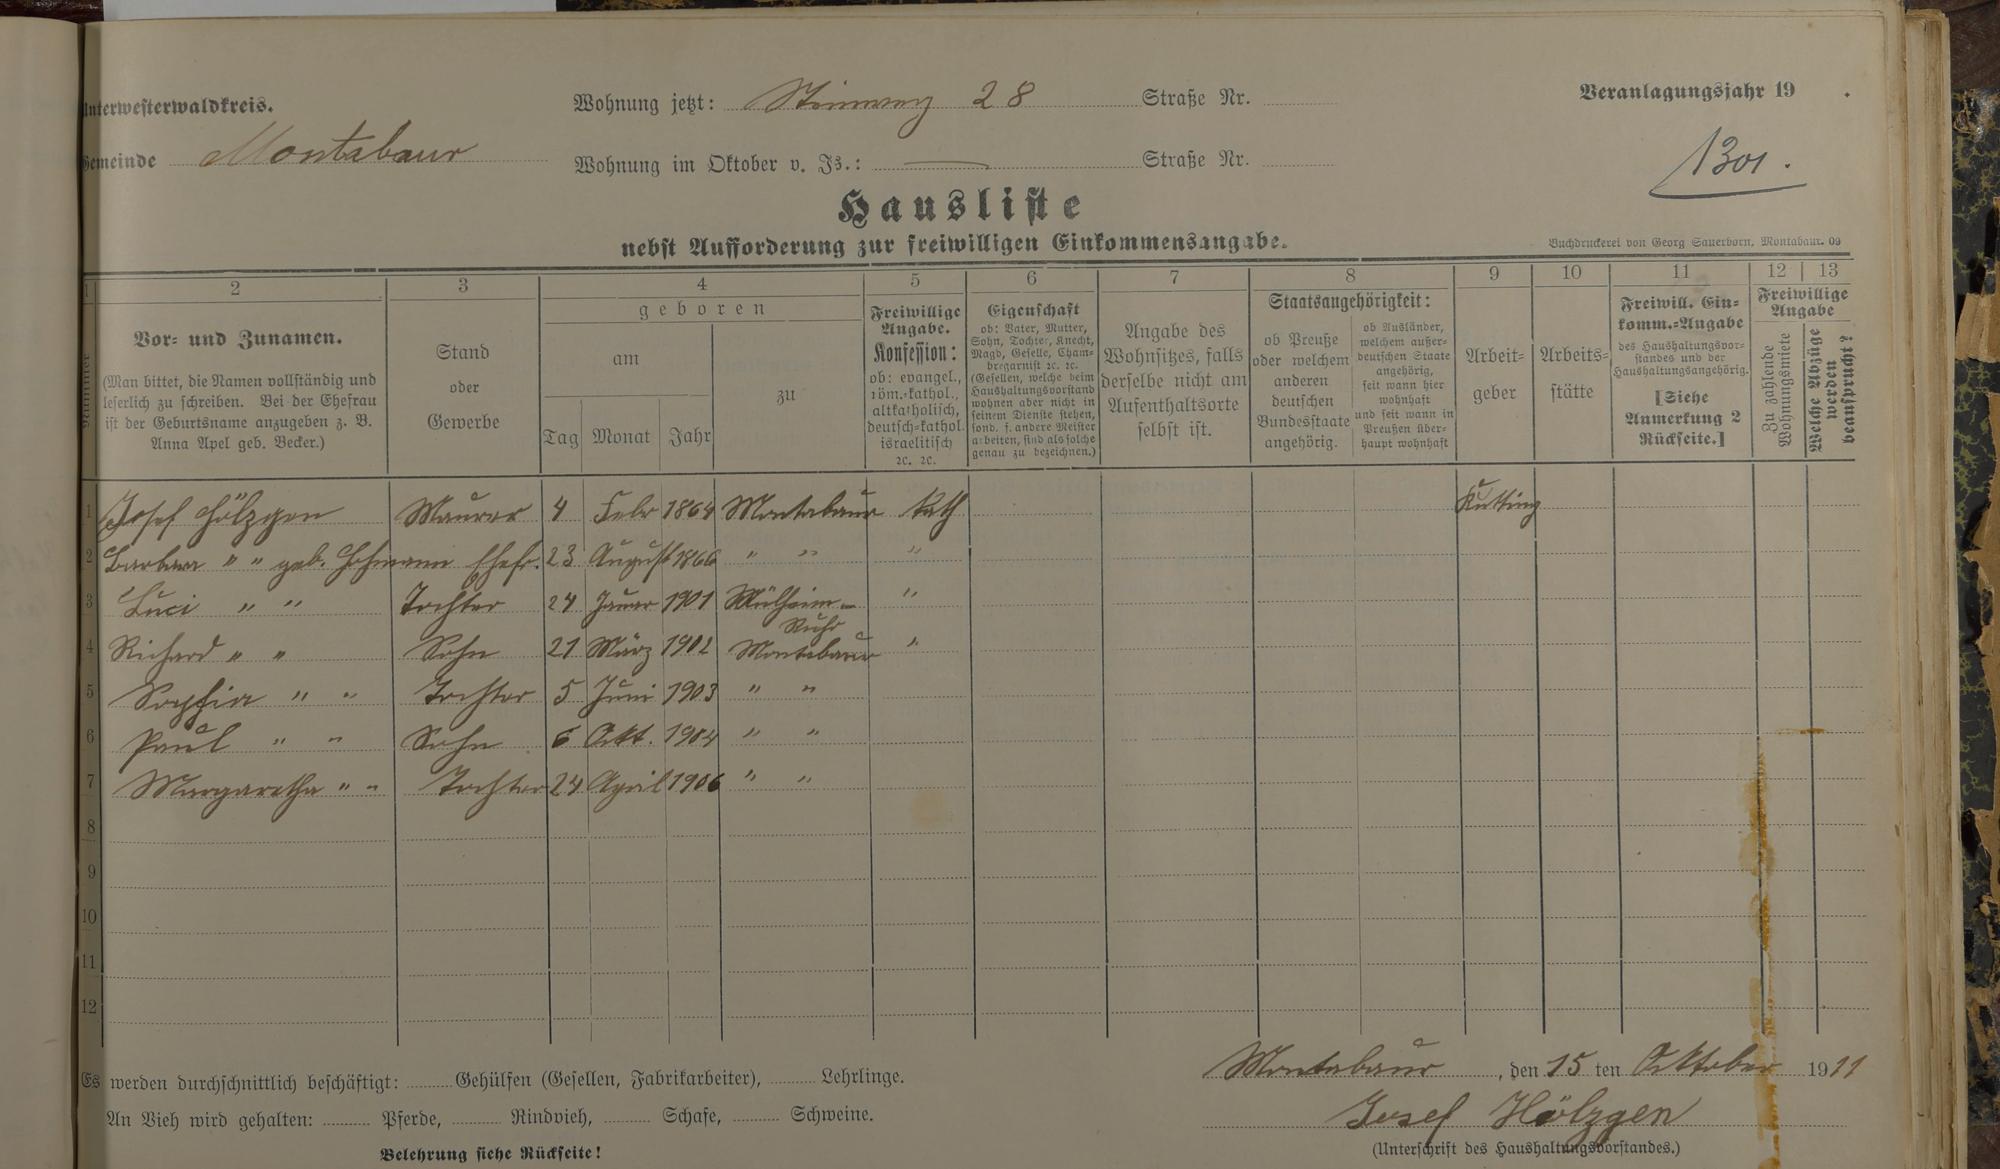 Unterwesterwaldkreis.
Gemeinde Montabaur
Wohnung jetzt: Steinweg 28 Straße Nr.
Wohnung im Oktober v. Js.: — Straße Nr.
Veranlagungsjahr 19 .
1301.
Hausliste
nebst Aufforderung zur freiwilligen Einkommensangabe.
Buchdruckerei von Georg Sauerborn, Montabaur. 09
1 2 3 4 5 6 7 8 9 10 11 12 13
Nummer
Vor- und Zunamen.
(Man bittet, die Namen vollständig und
leserlich zu schreiben. Bei der Ehefrau
ist der Geburtsname anzugeben z. B.
Anna Apel geb. Becker.)
Stand
oder
Gewerbe
geboren
am
Tag Monat Jahr
zu
Freiwillige
Angabe.
Konfession:
ob: evangel.,
röm.-kathol.,
altkatholisch,
deutsch-kathol.
israelitisch
2c. 2c.
Eigenschaft
ob: Vater, Mutter,
Sohn, Tochter, Knecht,
Magd, Geselle, Cham-
bregarnist 2c. 2c.
(Gesellen, welche beim
Haushaltungsvorstand
wohnen aber nicht in
seinem Dienste stehen,
sond. f. andere Meister
arbeiten, sind als solche
genau zu bezeichnen.)
Angabe des
Wohnsitzes, falls
derselbe nicht am
Aufenthaltsorte
selbst ist.
Staatsangehörigkeit:
ob Preuße
oder welchem
anderen
deutschen
Bundesstaate
angehörig.
ob Ausländer,
welchem außer-
deutschen Staate
angehörig,
seit wann hier
wohnhaft
und seit wann in
Preußen über-
haupt wohnhaft
Arbeit-
geber
Arbeits-
stätte
Freiwill. Ein-
komm.-Angabe
des Haushaltungsvor-
standes und der
Haushaltungsangehörig.
[Siehe
Anmerkung 2
Rückseite.]
Freiwillige
Angabe
Zu zahlende
Wohnungsmiete
Welche Abzüge
werden
beansprucht?
1 Josef Hölzgen Maurer 4 Febr 1864 Montabaur kath Kutting
2 Barbara " " geb. Hofmann Ehefr. 23 August 1866 " " "
3 Luci " " Tochter 24 Januar 1901 Mülheim- "
Ruhr
4 Richard " " Sohn 21 März 1902 Montabaur "
5 Sophia " " Tochter 5 Juni 1903 " "
6 Paul " " Sohn 6 Okt. 1904 " "
7 Margaretha " " Tochter 24 April 1906 " "
8
9
10
11
12
Es werden durchschnittlich beschäftigt: Gehülfen (Gesellen, Fabrikarbeiter), Lehrlinge.
An Vieh wird gehalten: Pferde, Rindvieh, Schafe, Schweine.
Belehrung siehe Rückseite!
Montabaur, den 15 ten Oktober 1911
Josef Hölzgen
(Unterschrift des Haushaltungsvorstandes.)